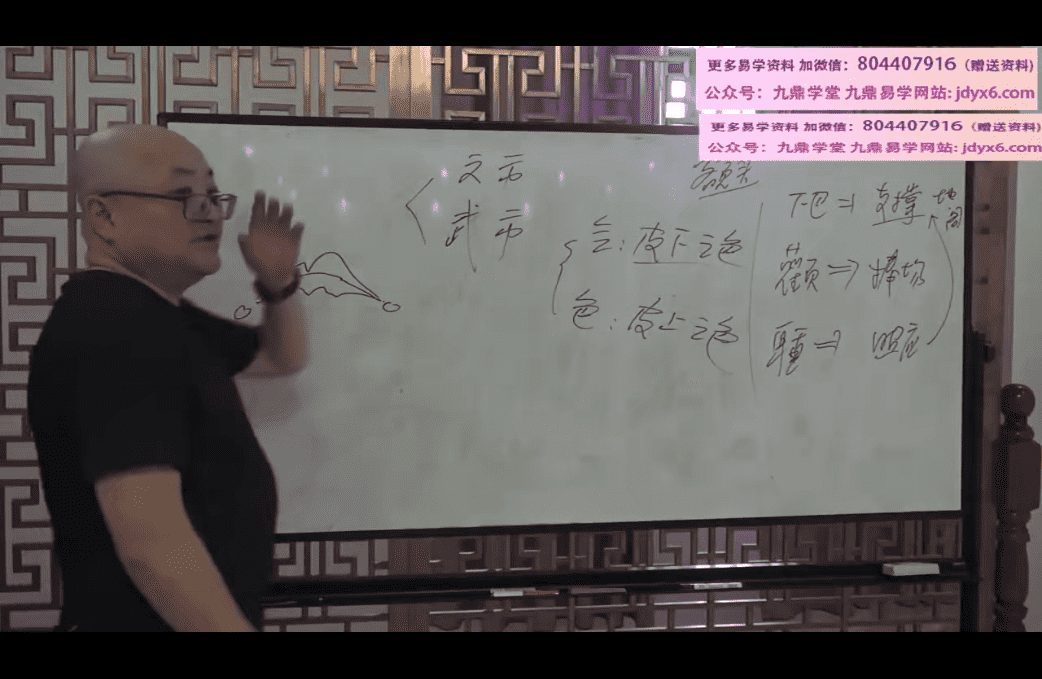 更多易学资料 加微信：804407916（赠送资料）
公众号：九鼎学堂 九鼎易学网站: jdyx6.com
更多易学资料 加微信：804407916（赠送资料）
公众号：九鼎学堂 九鼎易学网站: jdyx6.com
文市
武市
额头
气：皮下之色
色：皮上之色
下巴⇒支撑 地阁
颧⇒捧场
耳垂⇒照应